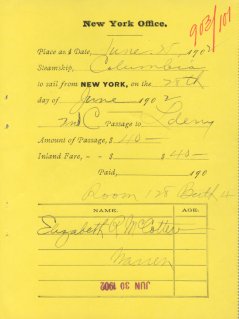 New York Office.
903/101
Place and Date, June 25 190
Steamship, Columbia
to sail from NEW YORK, on the 28th
day of June 1902
2nd C Passage to L'derry
Amount of Passage, $ 40 —
Inland Fare, - - $ $ 40 —
Paid, 190
Room 128 Berth 4
NAME. AGE.
Elizabeth R McCotter
Warren
JUN 30 1902